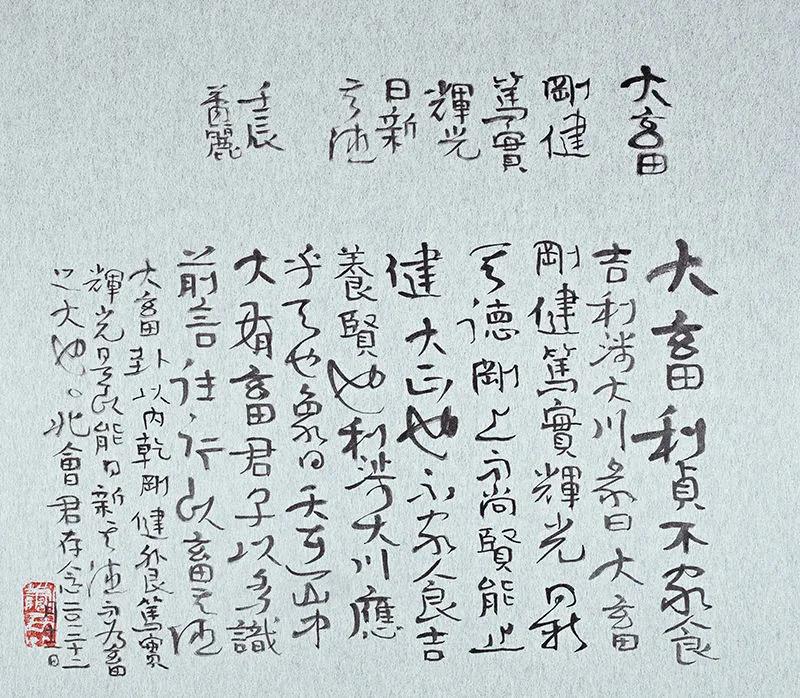 大畜
剛健
篤實
輝光
日新
其德
壬辰
大畜利貞不家食
吉利涉大川彖曰大畜
剛健篤實輝光日新
其德剛上而尚賢能止
健大正也不家食吉
養賢也利涉大川應
乎天也象曰天在山中
大有畜君子以多識
前言往行以畜其德
大畜卦以內乾剛健外艮篤實
輝光是以能日新其德而為畜
之大也。會君存念